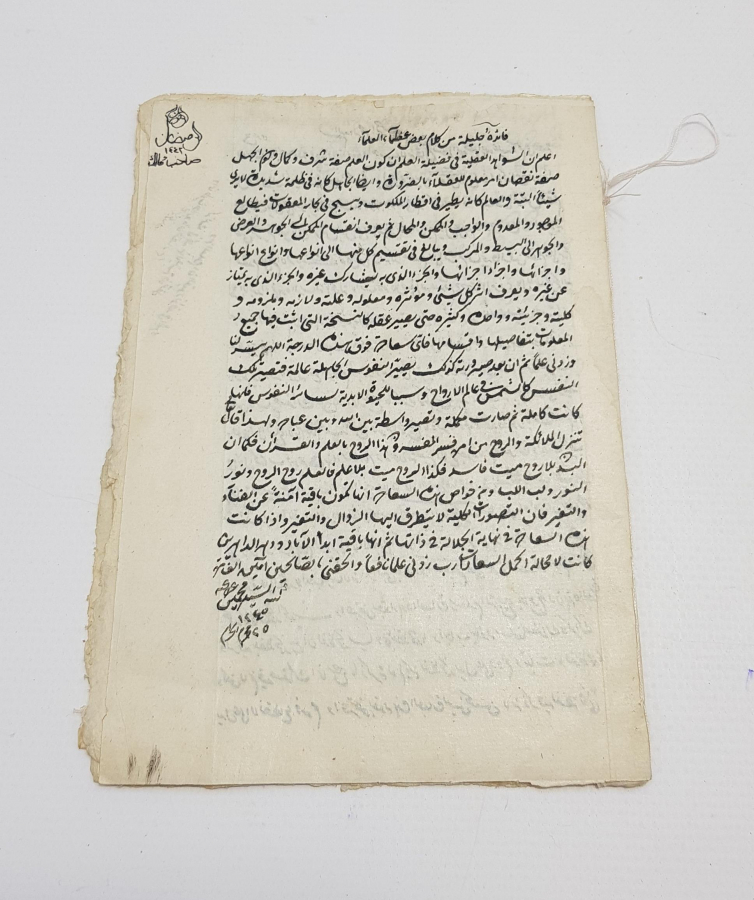 رمضان
١٤٤٢
صاحب ومالك
فائدة جليلة من كلام بعض عقلاء العلماء
اعلم ان الشواهد العقلية في فضيلة العلم ان كون العلم صفة شرف وكمال وكون الجهل
صفة نقصان امر معلوم للعقلاء بالضرورة وايضا الجاهل كانه في ظلمة شديدة لا يرى
شيئا البتة والعالم كانه يطير في اقطار الملكوت ويسبح في بحار المعقولات فيطالع
الموجود والمعدوم والواجب والممكن والمحال ثم يعرف انقسام الممكن الى الجوهر والعرض
والجوهر الى البسيط والمركب ويبالغ في تقسيم كل منها الى أنواعها وانواع انواعها
واجزائها واجزاء اجزائها والجزء الذي به يشارك غيره والجزء الذي به يمتاز
عن غيره ويعرف اثر كل شيئ ومؤثره ومعلوله وعلته ولازمه وملزومه و
كليته وجزئيته وواحده وكثيره حتى يصير عقله كالنسخة التي اثبت فيها جميع
المعلومات بتفاصيلها واقسامها فاي سعادة فوق هذه الدرجة اللهم يسر لنا
وزدني علما ثم ان بعد صيرورته كذلك يصير النفوس الجاهلة عالمة فتصير تلك
النفس كالشمس في عالم الارواح وسببا للحيوة الابدية لسائر النفوس فانها
كانت كاملة ثم صارت مكملة وتصير واسطة بين الله وبين عباده ولهذا قال
تنزل الملائكة والروح من امره فسر المفسرون هذا الروح بالعلم والقرآن فكما ان
البدن بلا روح ميت فاسد فكذا الروح ميت بلا علم فالعلم روح الروح ونور
النور ولب اللب ومن خواص هذه السعادة انها تكون باقية آمنة عن الفناء
والتغير فان التصورات الكلية لا يتطرق اليها الزوال والتغير واذا كانت
هذه السعادة في نهاية الجلالة في ذاتها ثم انها باقية ابد الآباد ودهر الداهرين
كانت لا محالة اكمل السعادات رب زدني علما نافعا والحقني بالصالحين آمين
كتبه السيد محمد
١٢٤٥
٢٥ محرم الحرام